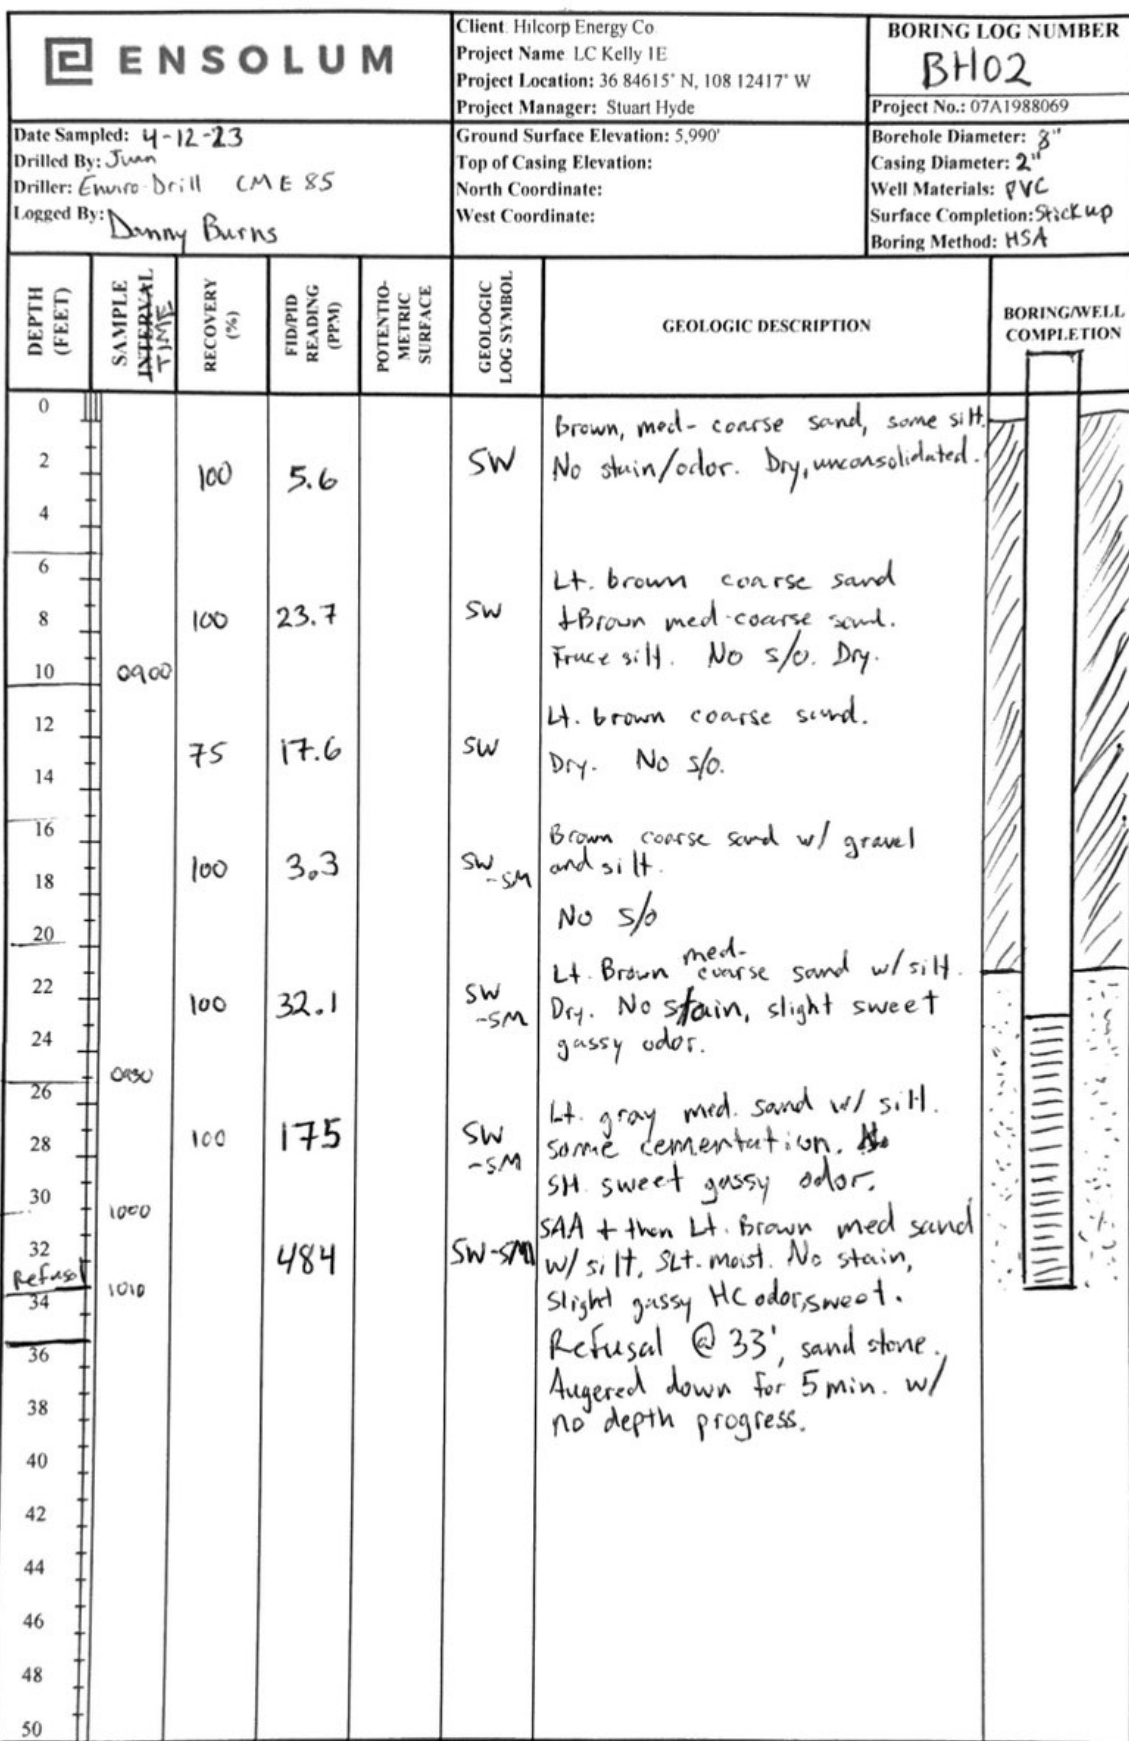 ENSOLUM
Client: Hilcorp Energy Co
Project Name LC Kelly 1E
Project Location: 36 84615° N, 108 12417° W
Project Manager: Stuart Hyde
BORING LOG NUMBER
BH02
Project No.: 07A1988069
Date Sampled: 4-12-23
Drilled By: Juan
Driller: Enviro-Drill CME 85
Logged By: Danny Burns
Ground Surface Elevation: 5,990'
Top of Casing Elevation:
North Coordinate:
West Coordinate:
Borehole Diameter: 8"
Casing Diameter: 2"
Well Materials: PVC
Surface Completion: Stick up
Boring Method: HSA
DEPTH (FEET)
SAMPLE INTERVAL TIME
RECOVERY (%)
FID/PID READING (PPM)
POTENTIO-METRIC SURFACE
GEOLOGIC LOG SYMBOL
GEOLOGIC DESCRIPTION
BORING/WELL COMPLETION
0
Brown, med-coarse sand, some silt.
2 100 5.6 SW No stain/odor. Dry, unconsolidated.
4
6
Lt. brown coarse sand
8 100 23.7 SW + Brown med-coarse sand.
Trace silt. No s/o. Dry.
10 0900
12
Lt. brown coarse sand.
75 17.6 SW Dry. No s/o.
14
16
Brown coarse sand w/ gravel
100 3.3 SW-SM and silt.
18
No s/o
20
Lt. Brown med-coarse sand w/ silt.
22 100 32.1 SW-SM Dry. No stain, slight sweet
24 gassy odor.
0930
26
Lt. gray med. sand w/ silt.
28 100 175 SW-SM some cementation. No
Slt. sweet gassy odor.
30 1000
SAA + then Lt. Brown med sand
32 484 SW-SM w/ silt, Slt. moist. No stain,
Refusal 1010
34 Slight gassy HC odor, sweet.
Refusal @ 33', sand stone.
36
Augered down for 5 min. w/
38 no depth progress.
40
42
44
46
48
50